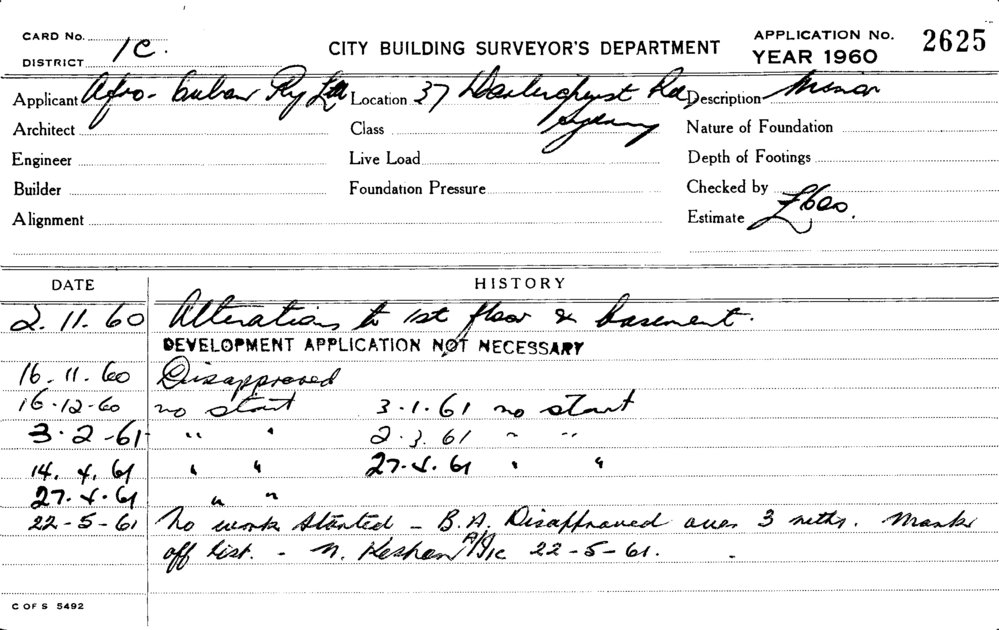 CARD No. 1C.
DISTRICT
CITY BUILDING SURVEYOR'S DEPARTMENT
APPLICATION No. 2625
YEAR 1960
Applicant Afro-Cuban Pty Ltd Location 37 Darlinghurst Rd Description Minor
Sydney
Architect Class Nature of Foundation
Engineer Live Load Depth of Footings
Builder Foundation Pressure Checked by
Alignment Estimate £600.
DATE HISTORY
2.11.60 Alterations to 1st floor & basement.
DEVELOPMENT APPLICATION NOT NECESSARY
16.11.60 Disapproved
16-12-60 no start 3.1.61 no start
3.2-61 " " 2.3.61 " "
14.4.61 " " 27.4.61 " "
27.4.61 " "
22-5-61 No work started - B.A. Disapproved over 3 mths. Mark
off list. - N. Keshan 22-5-61.
C OF S 5492